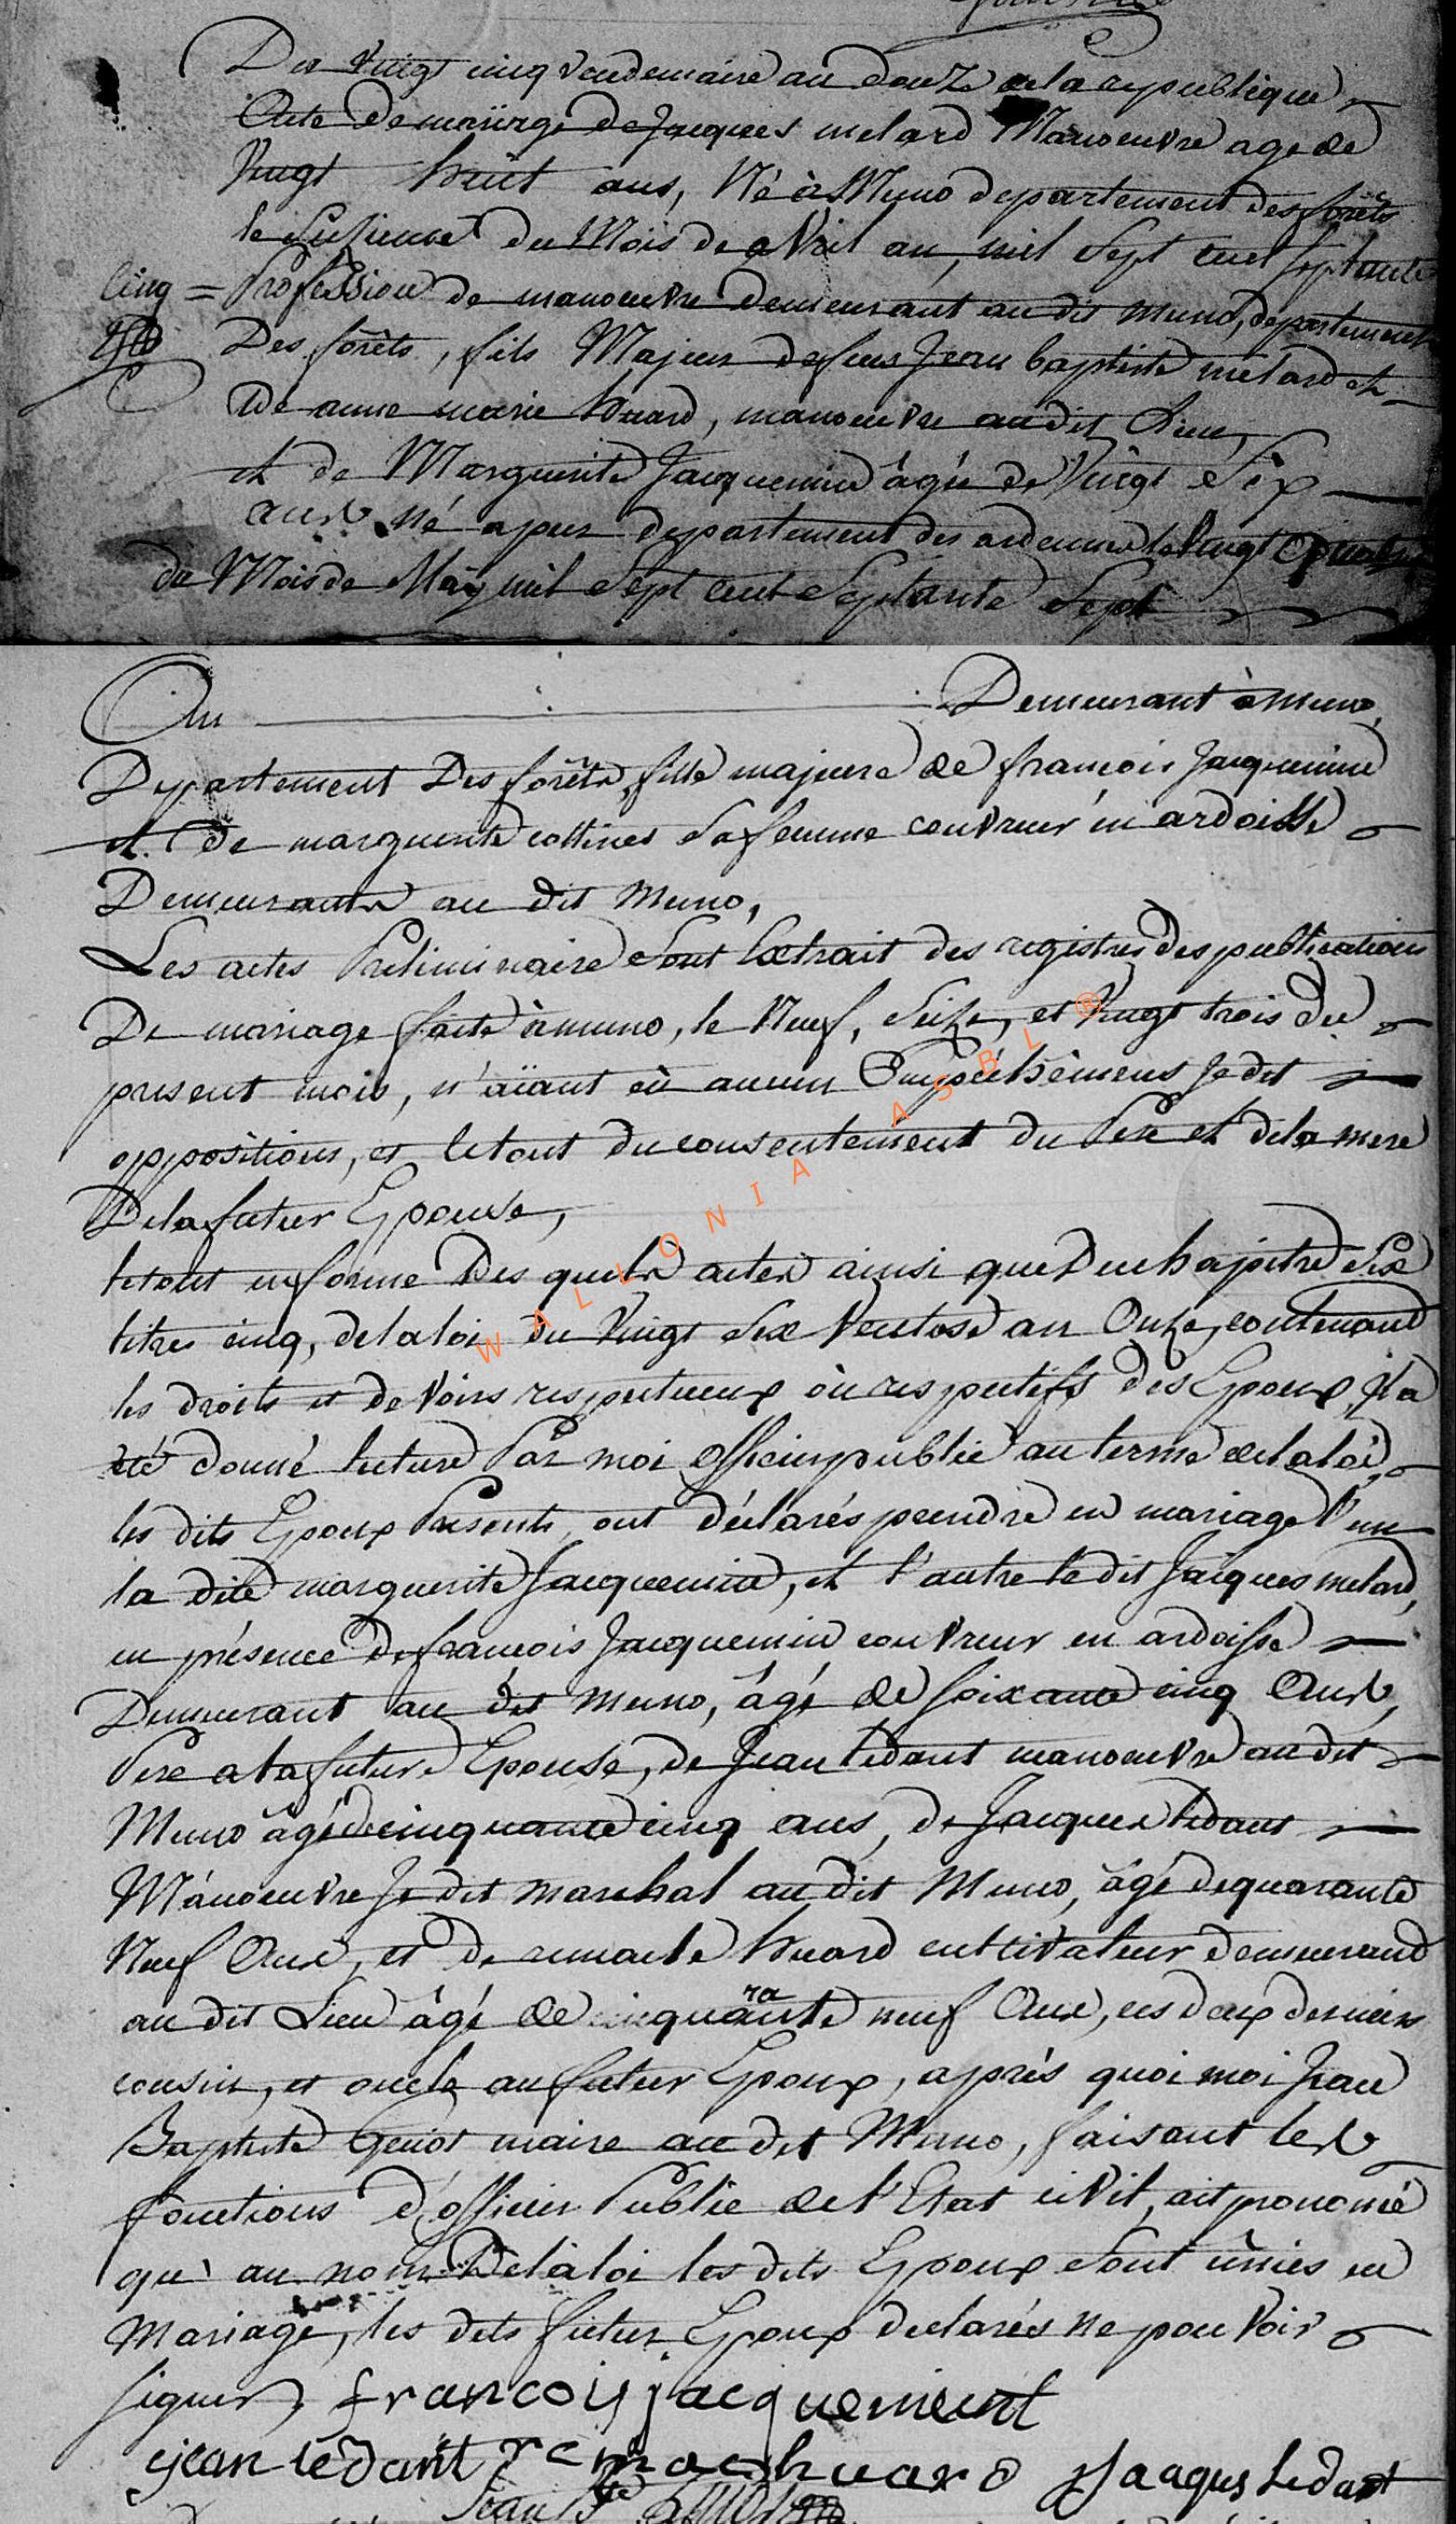 Du Vingt cinq Vendemaire an douze de la republique
Acte De mariage de Jacques melard Manoeuvre age de
Vingt huit ans, Né à Muno departement des forêts
le sixieme du Mois de aVril an, mil Sept cent septante
Cinq = Profession de manoeuvre demeurant au dit muno, departement
Des forêts, fils Majeur de feus Jean baptiste melard et
de anne marie huard, manoeuvre au dit Lieu,
et de Marguerite Jacquemin âgée de Vingt Six
ans né a pur departement des ardenne le Vingt quatre
du Mois de May mil Sept cent Septante Sept
An Demeurant à muno,
Departement Des forêts, fille majeure de francois Jacquemin
et de marguerite collines Sa femme couvreur en ardoisse
Demeurants au dit Muno,
Les actes Preliminaire Sont Extrait des registres des publications
De mariage faite à muno, le Neuf, Seize, et Vingt trois du
present mois, n'aïant eù aucun Empéchêmens Je dit
oppositions, et le tout du consentement du Pere et de la mere
De la futur Epouse,
le tout en forme Des quels actes ainsi que Du chapitre Six
titres cinq, de la loi du Vingt Six Ventose an Onze, contenand
les droits et deVoirs respectueux où respectifs des Epoux, il a
été donné lecture Par moi officier public au terme de la loi,
les dits Epoux Presents, ont déclarés prendre en mariage l'un
la dite marguerite Jacquemin, et l'autre le dit Jacques melard,
en présence de francois Jacquemin couvreur en ardoisse
Demeurant au dit Muno, âgé de soixante cinq Ans,
Pere a la future Epouse, de Jean ledant manoeuvre au dit
Muno âgé de cinquante cinq ans, de Jacques ledant
Manoeuvre Je dit marchal au dit Muno, âgé de quarante
Neuf Ans, et de remacle huard cultivateur demeurand
ra
au dit Lieu âgé de quante neuf Ans, ces deux derniers
cousin, et oncle au futur Epoux, après quoi moi Jean
Baptiste Geniot maire au dit Muno, faisant les
fonctions d'officier Public de l'Etat ciVil, ait prononcé
qu'au nom De la loi les dits Epoux Sont ûnies en
Mariage, les dits futur Epoux declarés ne pouVoir
signer, francois jacquemint
jean ledant remacle huard Jacques Ledant
Jean Bte
WALLONIA ASBL ®